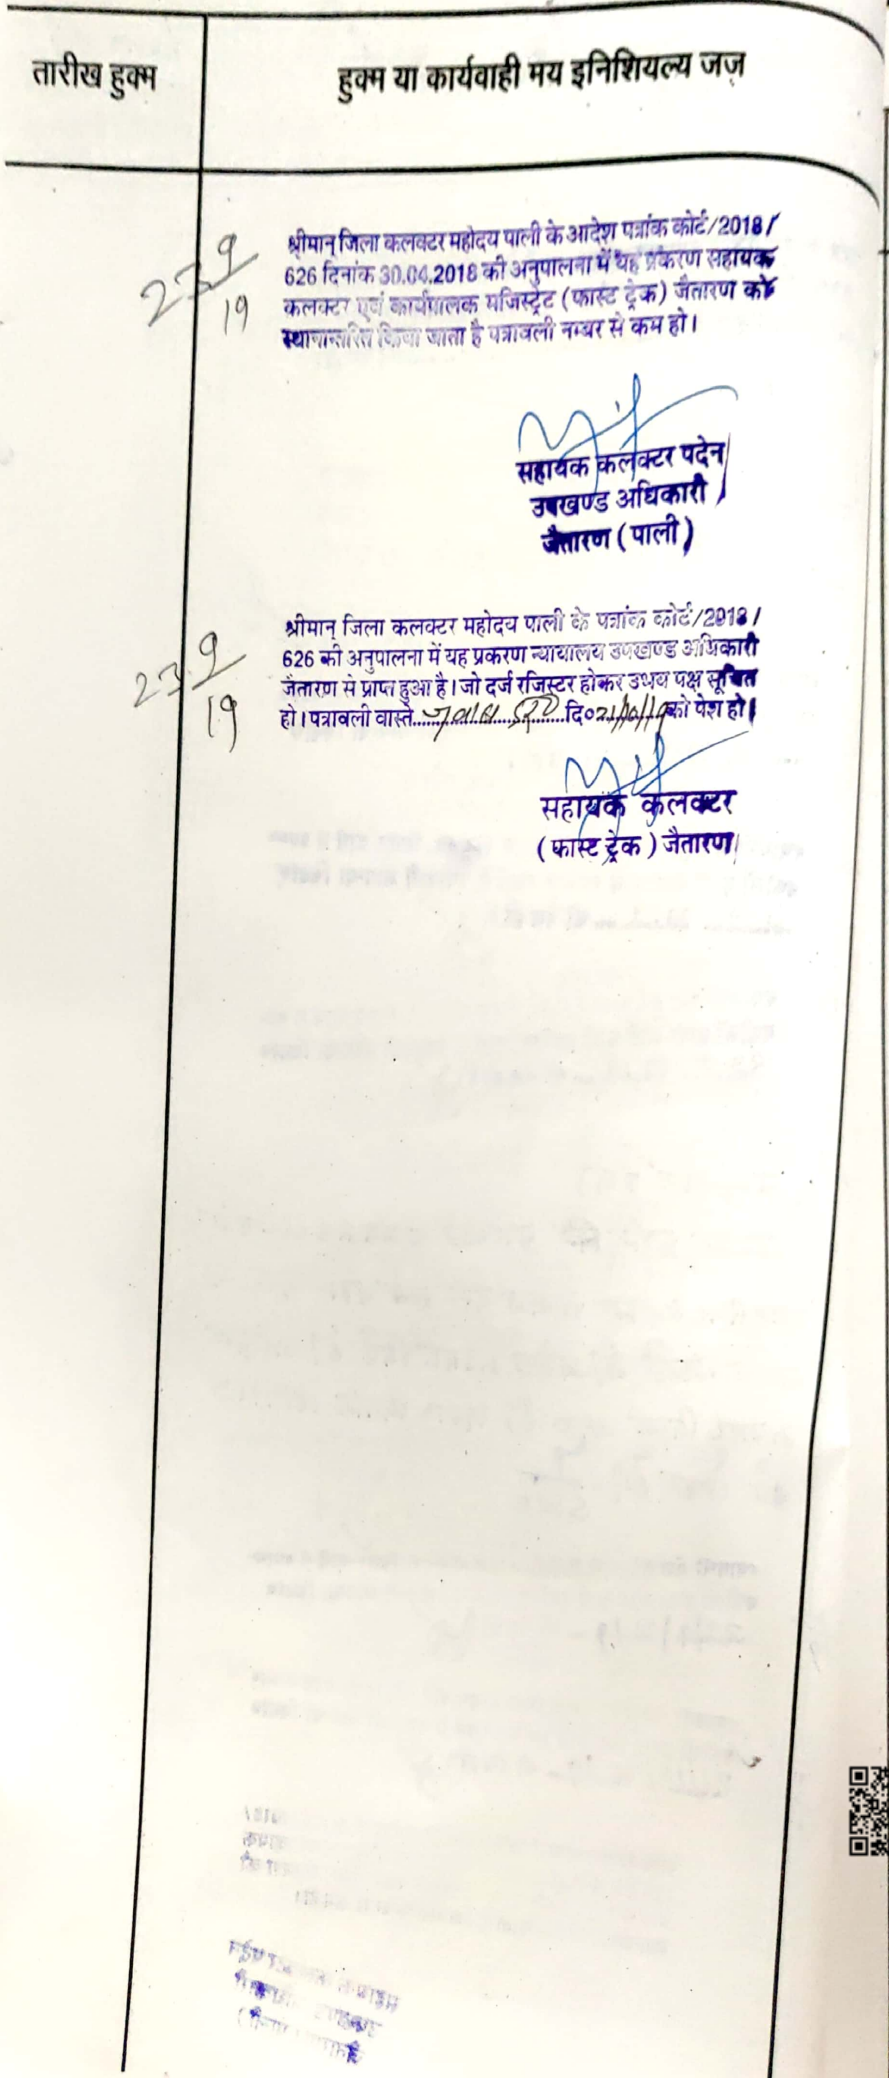 तारीख हुक्म
हुक्म या कार्यवाही मय इनिशियल्य जज़
23 9
19
श्रीमान् जिला कलक्टर महोदय पाली के आदेश पत्रांक कोर्ट/2018/
626 दिनांक 30.04.2018 की अनुपालना में यह प्रकरण सहायक
कलक्टर एवं कार्यपालक मजिस्ट्रेट (फास्ट ट्रेक) जैतारण को
स्थानान्तरित किया जाता है पत्रावली नम्बर से कम हो।
सहायक कलक्टर पदेन
उपखण्ड अधिकारी
जैतारण (पाली)
23 9
19
श्रीमान् जिला कलक्टर महोदय पाली के पत्रांक कोर्ट/2018/
626 की अनुपालना में यह प्रकरण न्यायालय उपखण्ड अधिकारी
जैतारण से प्राप्त हुआ है। जो दर्ज रजिस्टर होकर उभय पक्ष सूचित
हो। पत्रावली वास्ते दि० 21/10/19 को पेश हो।
सहायक कलक्टर
(फास्ट ट्रेक) जैतारण